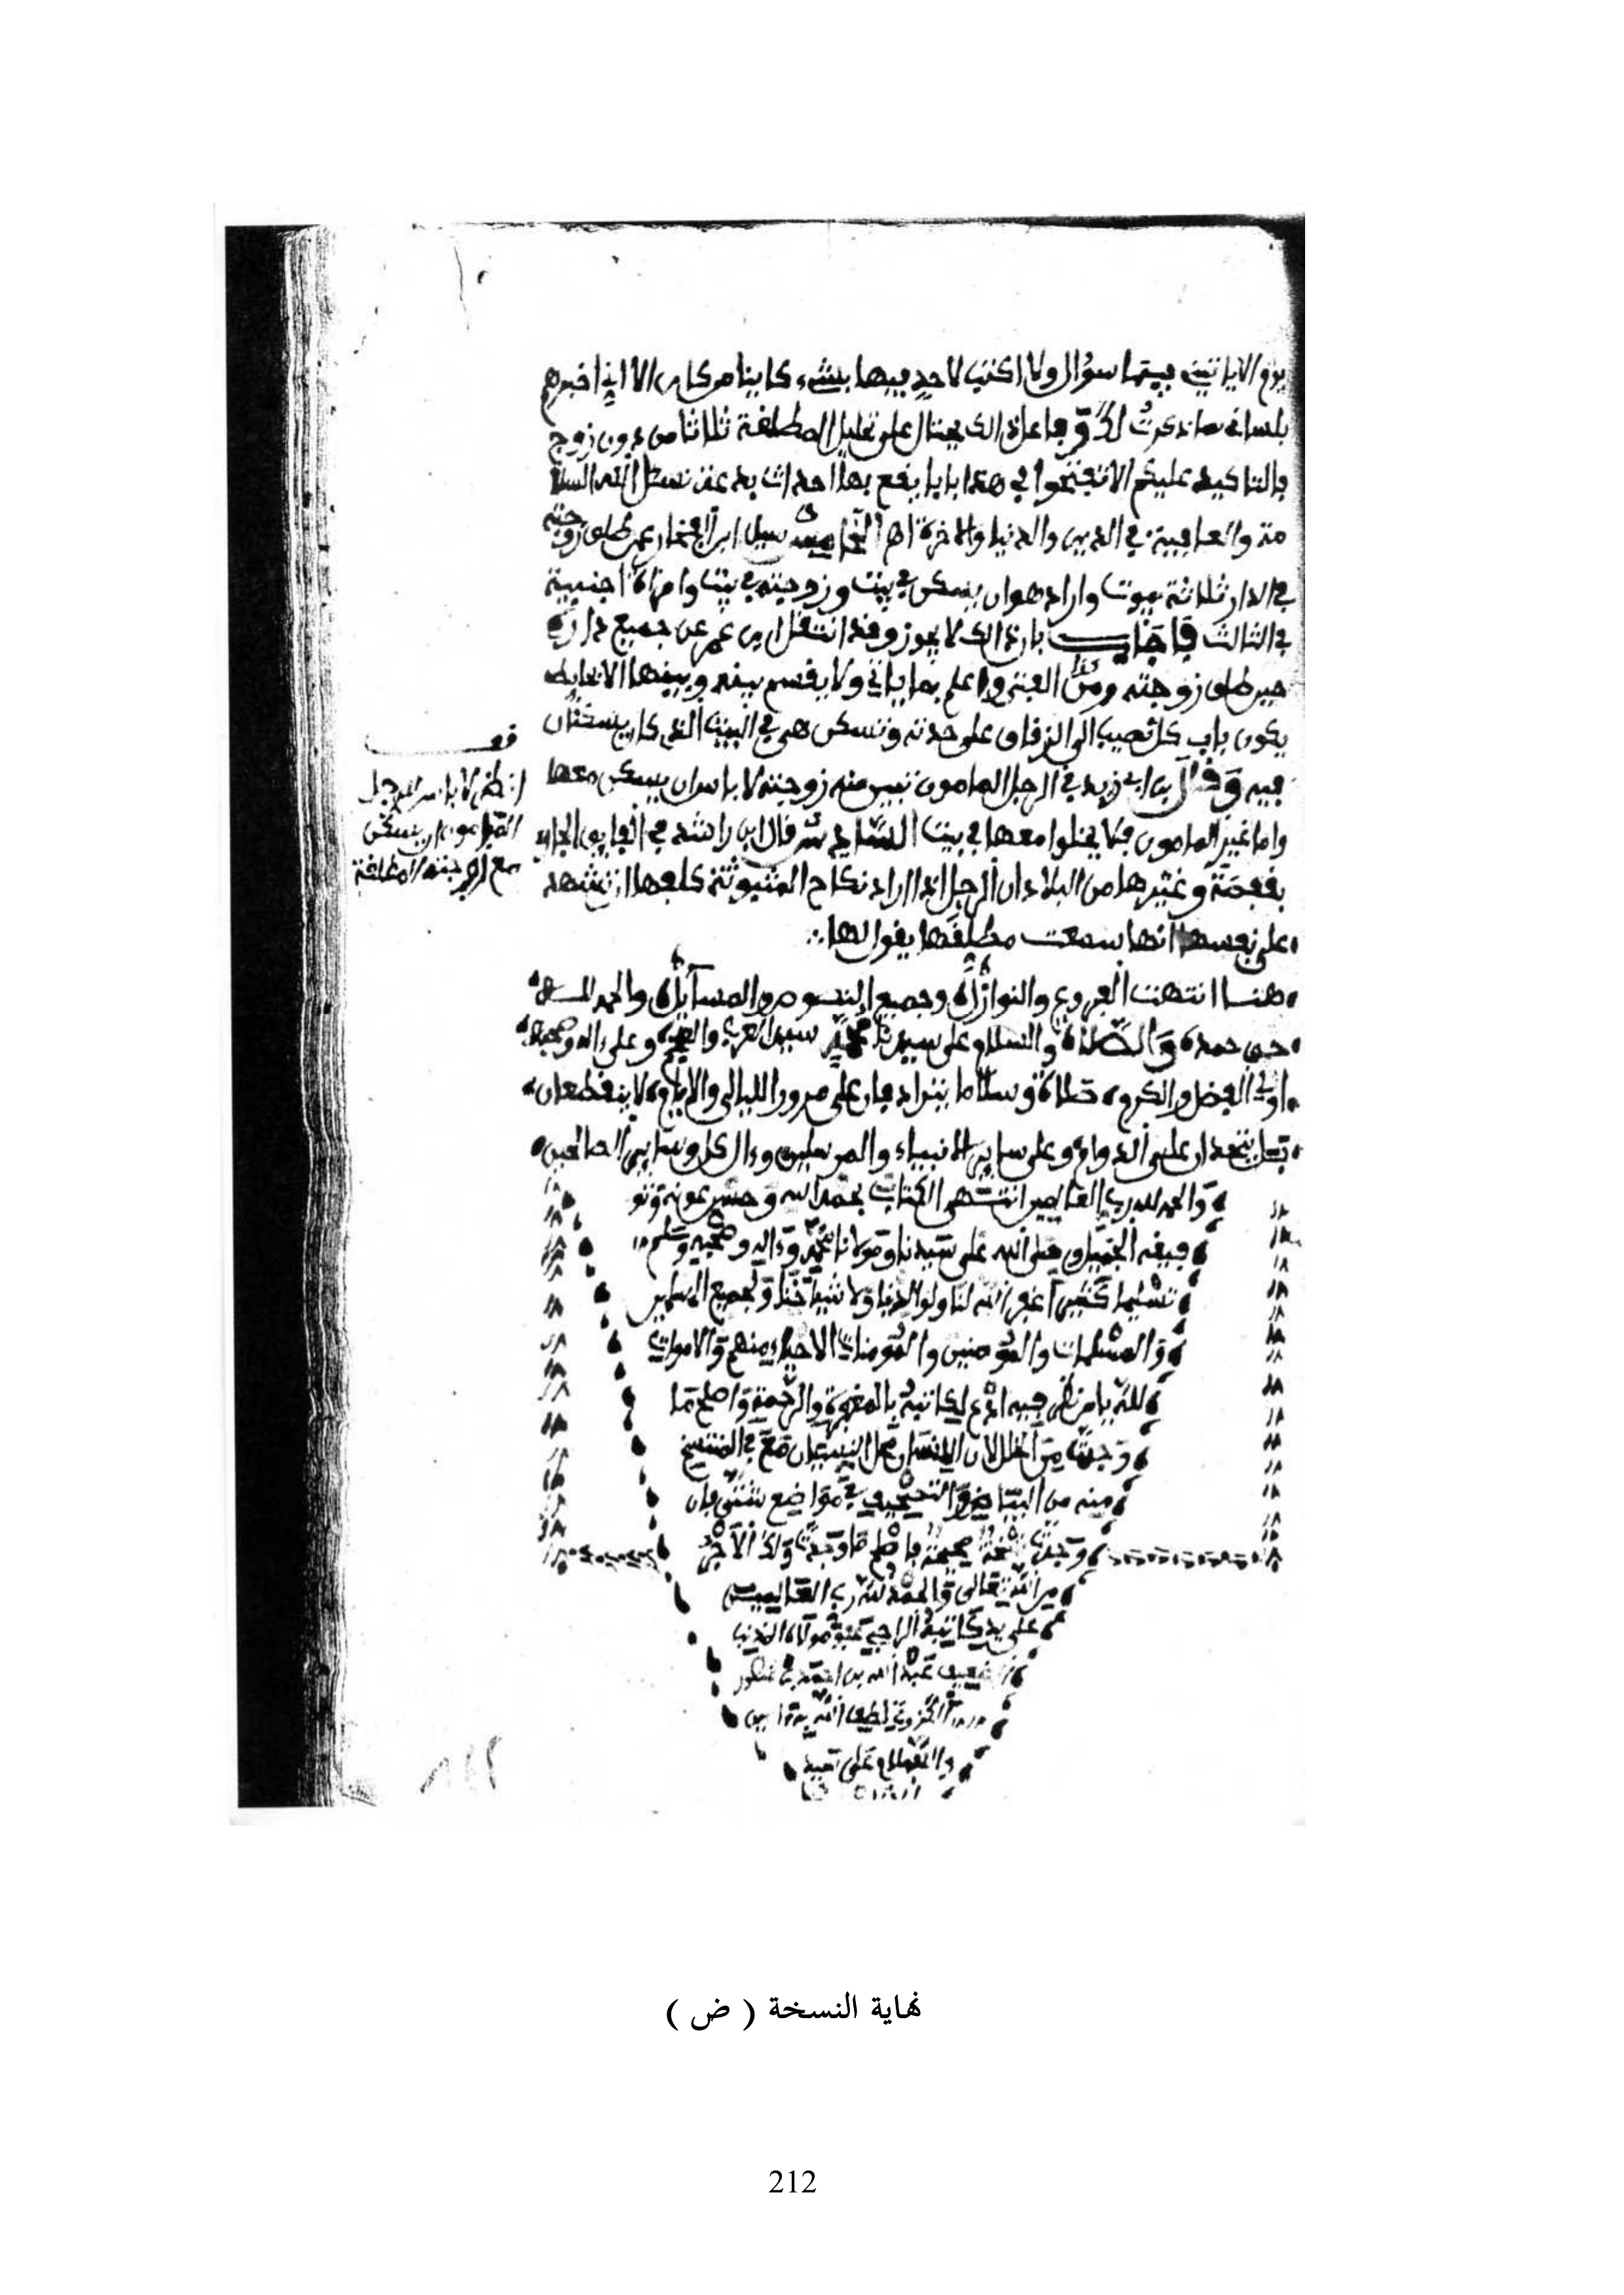 يوم الا ياتيني فيها سؤال ولا اكتب لاحد فيها بشيء كاينا من كان الا اني اخبرهم
بلساني ما ذكرت لك فاعانة ذلك يحتال على تحليل المطلقة ثلاثا من دون زوج
بالتاكيد عليكم الا تفتحوا في هذا بابا يقع بها احداث بدعة نسئل الله السلا
مة والعافية في الدين والدنيا والاخرة اهـ الخامس سيل ابن الفخار عمن طلق زوجته
في الدار ثلاثة بيوت واراد هو ان يسكن في بيت وزوجته في بيت وامراة اجنبية
في الثالث فاجاب بان ذلك لا يجوز وقد انتقل ابن عمر عن جميع داره
حين طلق زوجته ومن العتبي واعلم بما ياتي ولا يقسم بينه وبينها الا بحايط
يكون باب كل نصيب الى الزقاق على حدته وتسكن هي في البيت الذي كان يسكنان
فيه وقال ابن ابي زيد في الرجل المامون تبين منه زوجته لا باس ان يسكن معها
واما غير المامون فلا يخلوا معها في بيت السادس قال ابن راشد في الفايق الجاري
بقفصة وغيرها من البلاد ان الرجل اذا اراد نكاح المبتوتة كلفها ان تشهد
على نفسها انها سمعت مطلقها يقول لها
قف
انظر لا باس للرجل
المامون ان يسكن
مع زوجته المطلقة
هنا انتهت الفروع والنوازل وجميع المسايل والحمد لله
حق حمده والصلاة والسلام على سيدنا محمد سيد العرب والعجم وعلى اله وصحبه
اولي الفضل والكرم صلاة وسلاما يترادفان على مرور الليالي والايام لا ينقطعان
بل يتجددان على الدوام وعلى ساير الانبياء والمرسلين وءال كل وساير الصالحين
والحمد لله رب العالمين انتهى الكتاب بحمد الله وحسن عونه وتو
فيقه الجميل وصلى الله على سيدنا ومولانا محمد وءاله وصحبه وسلم
تسليما كثيرا غفر الله لنا ولوالدينا ولاشياخنا ولجميع المسلمين
والمسلمات والمؤمنين والمؤمنات الاحياء منهم والاموات
لله يا من نظر فيه ادع لكاتبه بالمغفرة والرحمة واصلح ما
وجدت من الخلل لان الانسان محل النسيان مع في المنتسخ
منه من البياض والتصحيف في مواضع شتى فان
وجدت نسخة صحيحة فاصلح ما وجدت ولك الاجر
من الله تعالى والحمد لله رب العالمين
على يد كاتبه الراجي عفو مولاه المذنب
الضعيف عبد الله بن احمد بن
لطف الله به ءامين
والسلام على نبيه
نهاية النسخة ( ض )
212